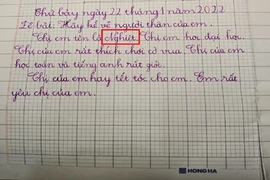 Thứ bảy ngày 22 tháng 1 năm 2022
Đề bài: Hãy kể về người thân của em.
Chị em tên là Nghiêt. Chị em học đại học.
Chị của em rất thích chơi cờ vua. Chị của em
học toán và tiếng anh rất giỏi.
Chị của em hay tết tóc cho em. Em rất
yêu chị của em.
HONG HA